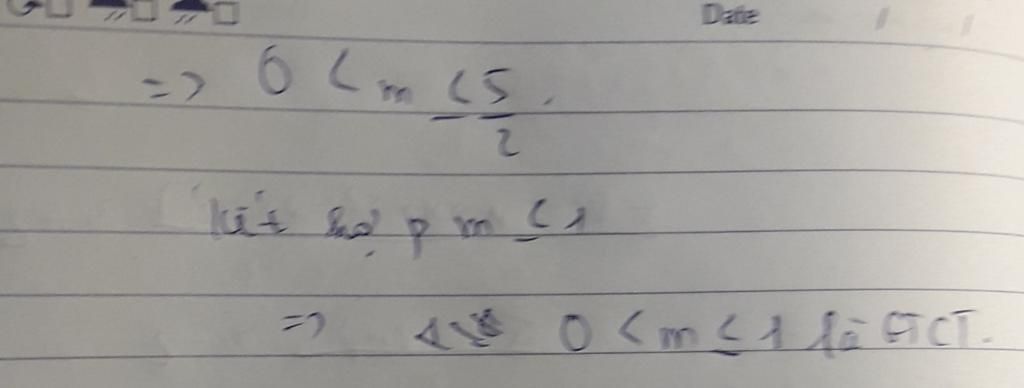 Date / /
=> 0 < m ≤ 5/2.
Kết hợp m ≤ 1
=> 0 < m ≤ 1 là GTCT.